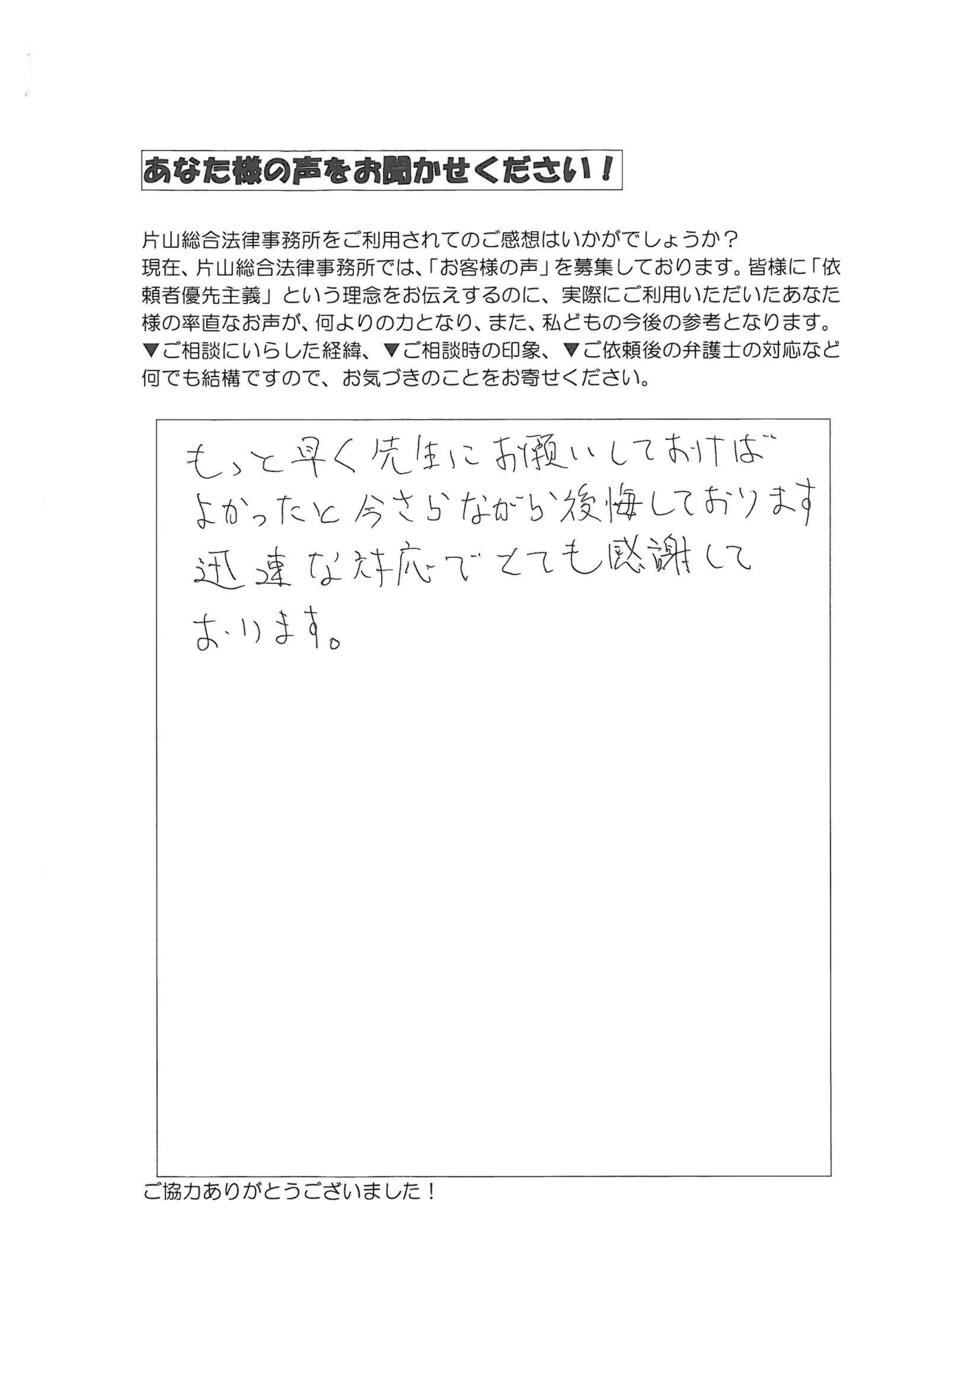 あなた様の声をお聞かせください！
片山総合法律事務所をご利用されてのご感想はいかがでしょうか？
現在、片山総合法律事務所では、「お客様の声」を募集しております。皆様に「依
頼者優先主義」という理念をお伝えするのに、実際にご利用いただいたあなた
様の率直なお声が、何よりの力となり、また、私どもの今後の参考となります。
▼ご相談にいらした経緯、▼ご相談時の印象、▼ご依頼後の弁護士の対応など
何でも結構ですので、お気づきのことをお寄せください。
もっと早く先生にお願いしておけば
よかったと今さらながら後悔しております
迅速な対応でとても感謝して
おります。
ご協力ありがとうございました！